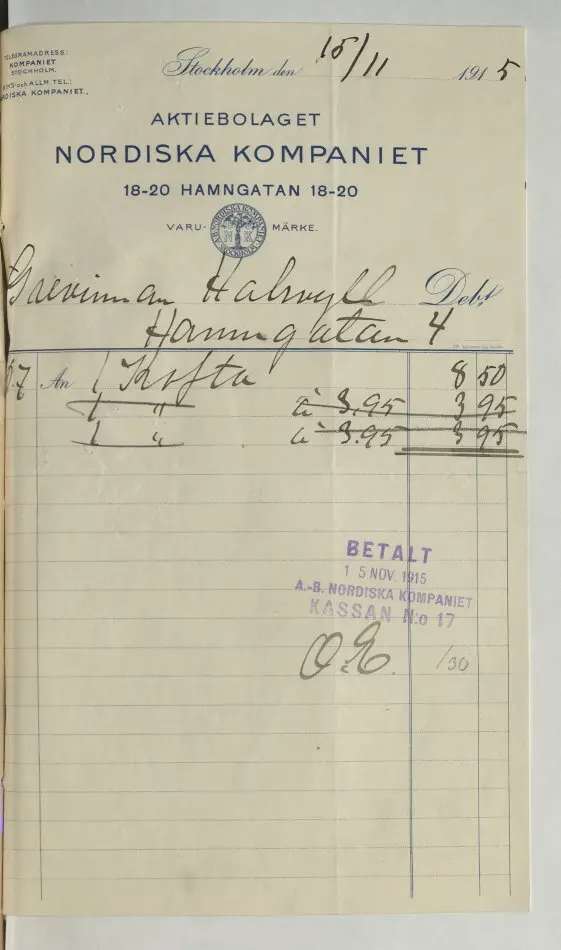 TELEGRAMADRESS:
KOMPANIET
STOCKHOLM.
RIKS- och ALLM. TEL.:
NORDISKA KOMPANIET.
Stockholm den 15/11 1915
AKTIEBOLAGET
NORDISKA KOMPANIET
18-20 HAMNGATAN 18-20
VARU- MÄRKE.
A.B. NORDISKA KOMPANIET STOCKHOLM
NK
Grevinnan Halwyll Debt
Hamngatan 4
An 1 Kofta 8 50
1 " à 3.95 3 95
1 " à 3.95 3 95
BETALT
15 NOV. 1915
A.-B. NORDISKA KOMPANIET
KASSAN N:o 17
O.E. /30